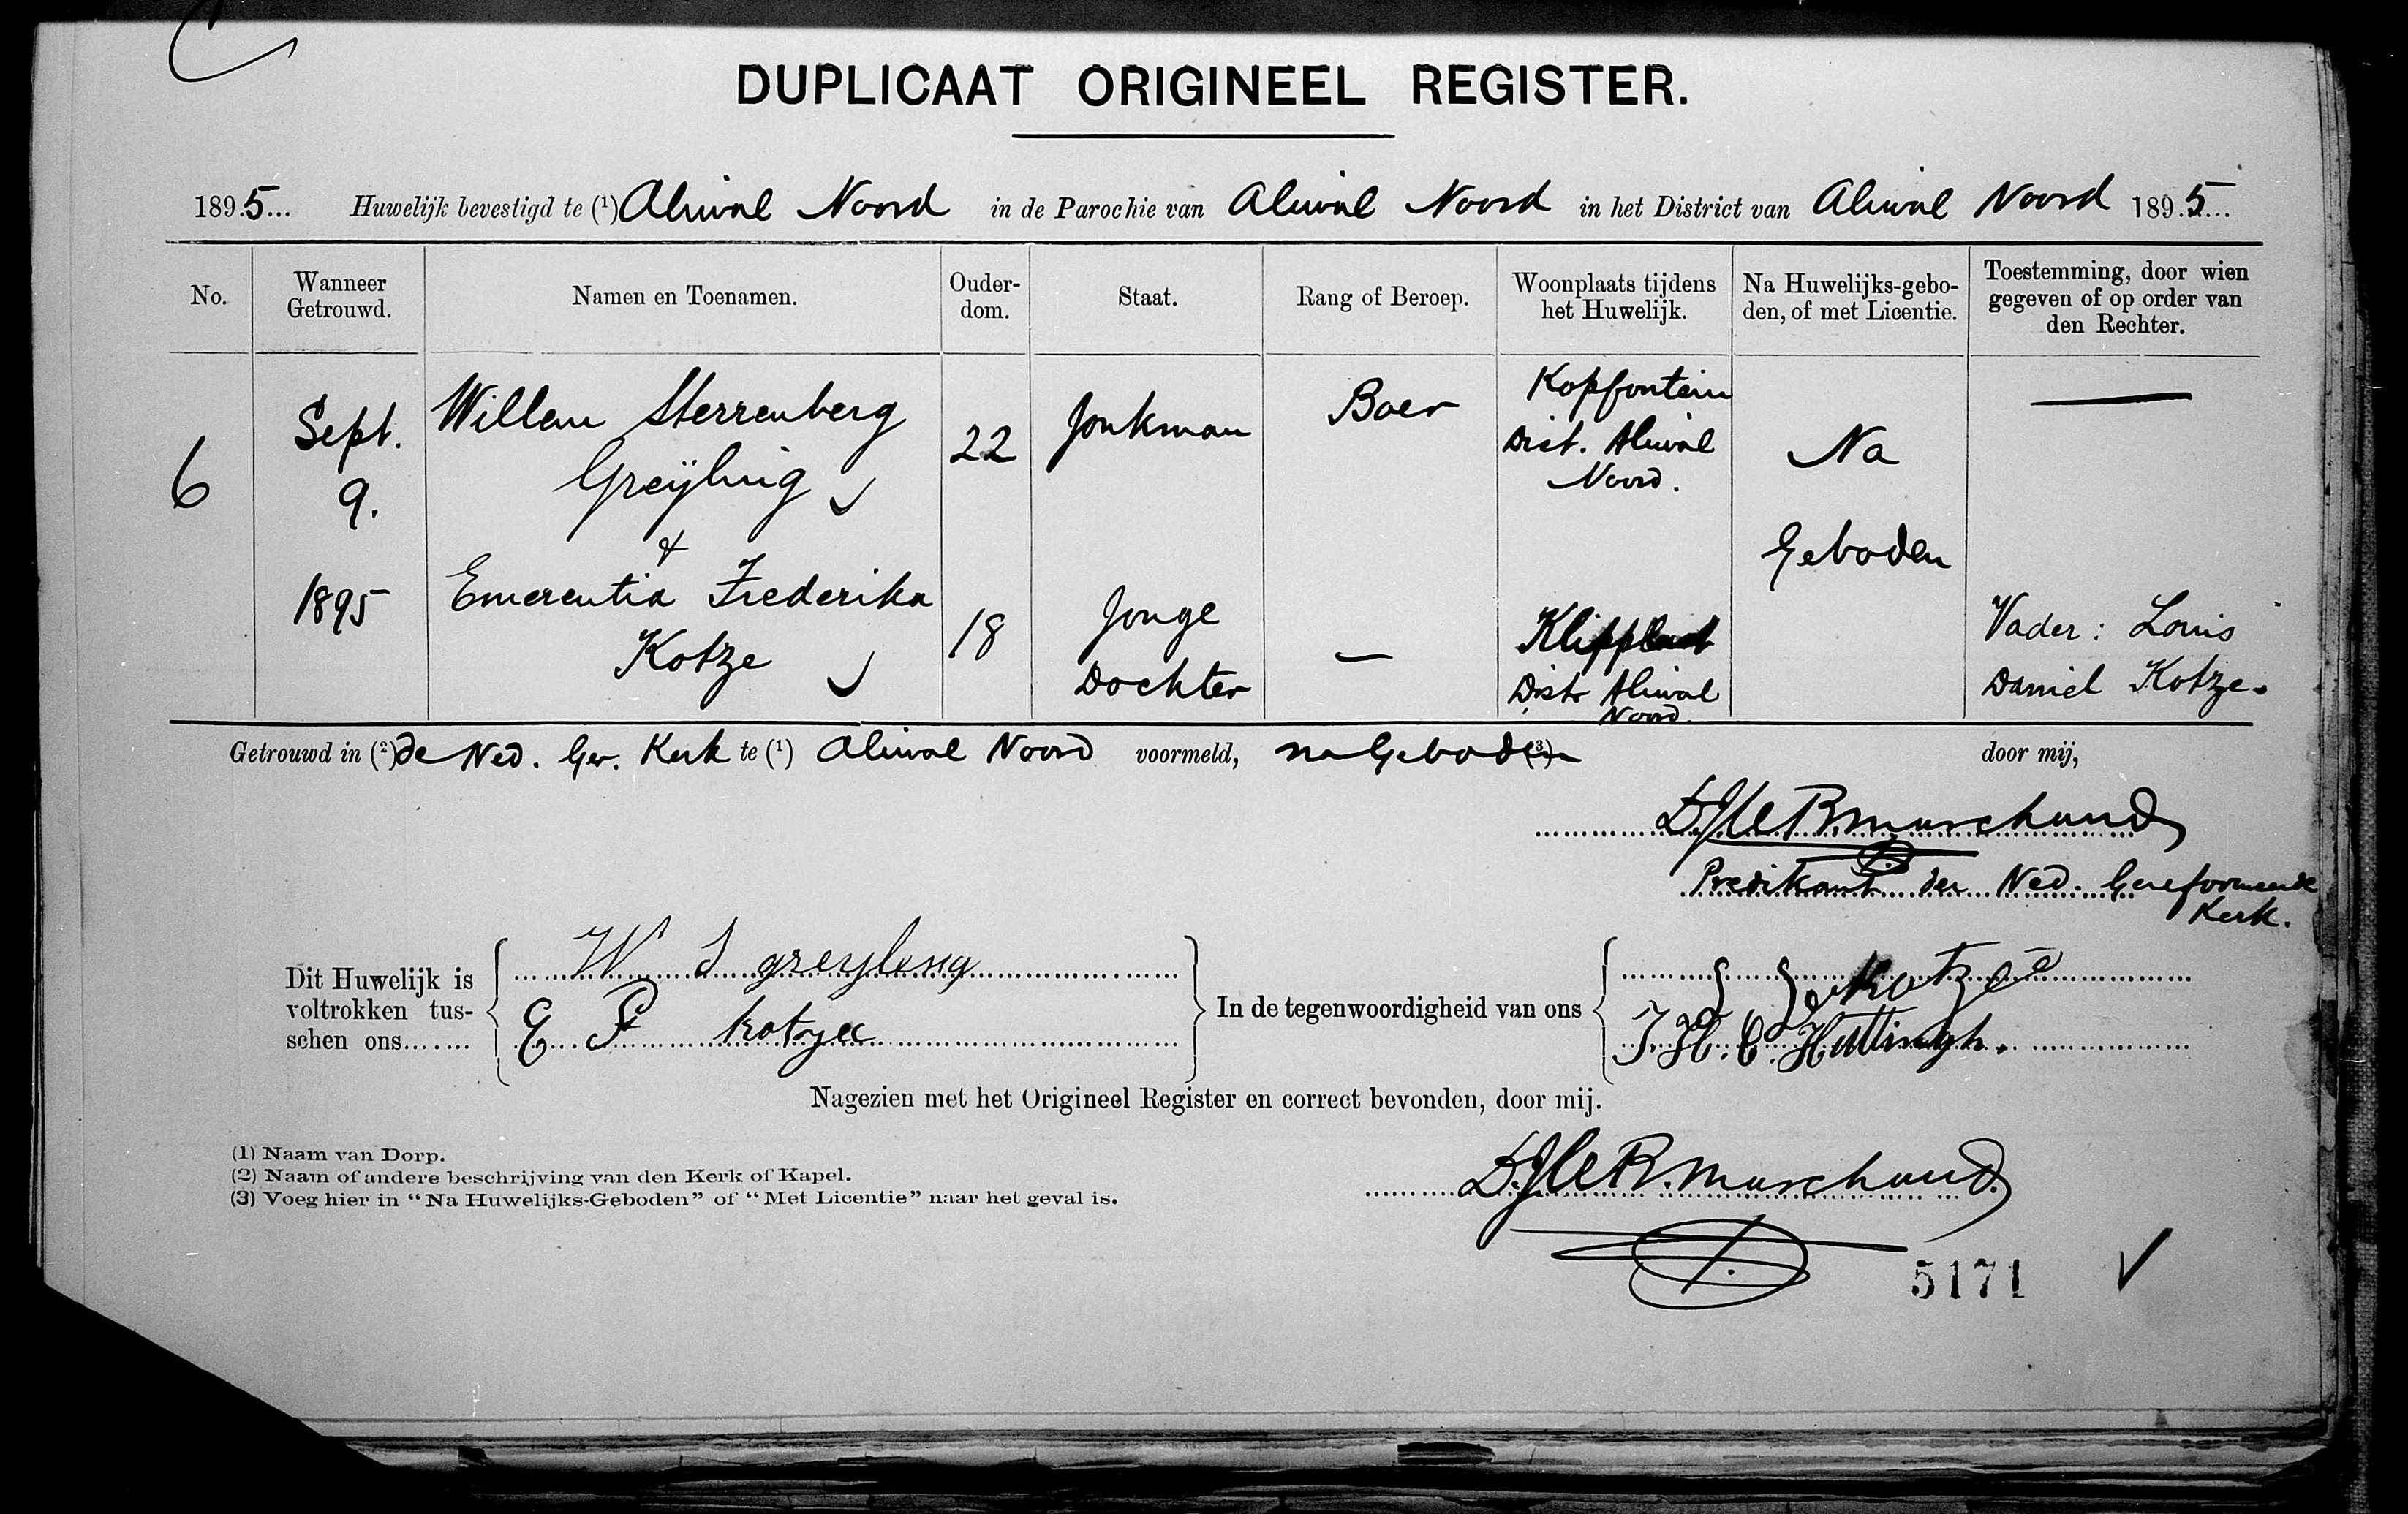 DUPLICAAT ORIGINEEL REGISTER.
1895... Huwelijk bevestigd te (1) Aliwal Noord in de Parochie van Aliwal Noord in het District van Aliwal Noord 1895...
No. Wanneer Getrouwd. Namen en Toenamen. Ouder-dom. Staat. Rang of Beroep. Woonplaats tijdens het Huwelijk. Na Huwelijks-gebo-den, of met Licentie. Toestemming, door wien gegeven of op order van den Rechter.
6
Sept.
9.
1895
Willem Sterrenberg
Greÿling
&
Emerentia Frederika
Kotze
22
18
Jonkman
Jonge
Dochter
Boer
—
Kopfontein
Dist. Aliwal
Noord.
Klipplaat
Distr Aliwal
Noord.
Na
Geboden
—
Vader: Louis
Daniel Kotze.
Getrouwd in (2) de Ned. Ger. Kerk te (1) Aliwal Noord voormeld, na Geboden (3) door mij,
Marchand
Predikant der Ned. Gereformeerde
Kerk.
Dit Huwelijk is
voltrokken tus-
schen ons.......
W S greyleng
E F kotzee
In de tegenwoordigheid van ons
Kotzee
J. H. C. Hattingh.
Nagezien met het Origineel Register en correct bevonden, door mij.
(1) Naam van Dorp.
(2) Naam of andere beschrijving van den Kerk of Kapel.
(3) Voeg hier in “Na Huwelijks-Geboden” of “Met Licentie” naar het geval is.
Marchand
5171